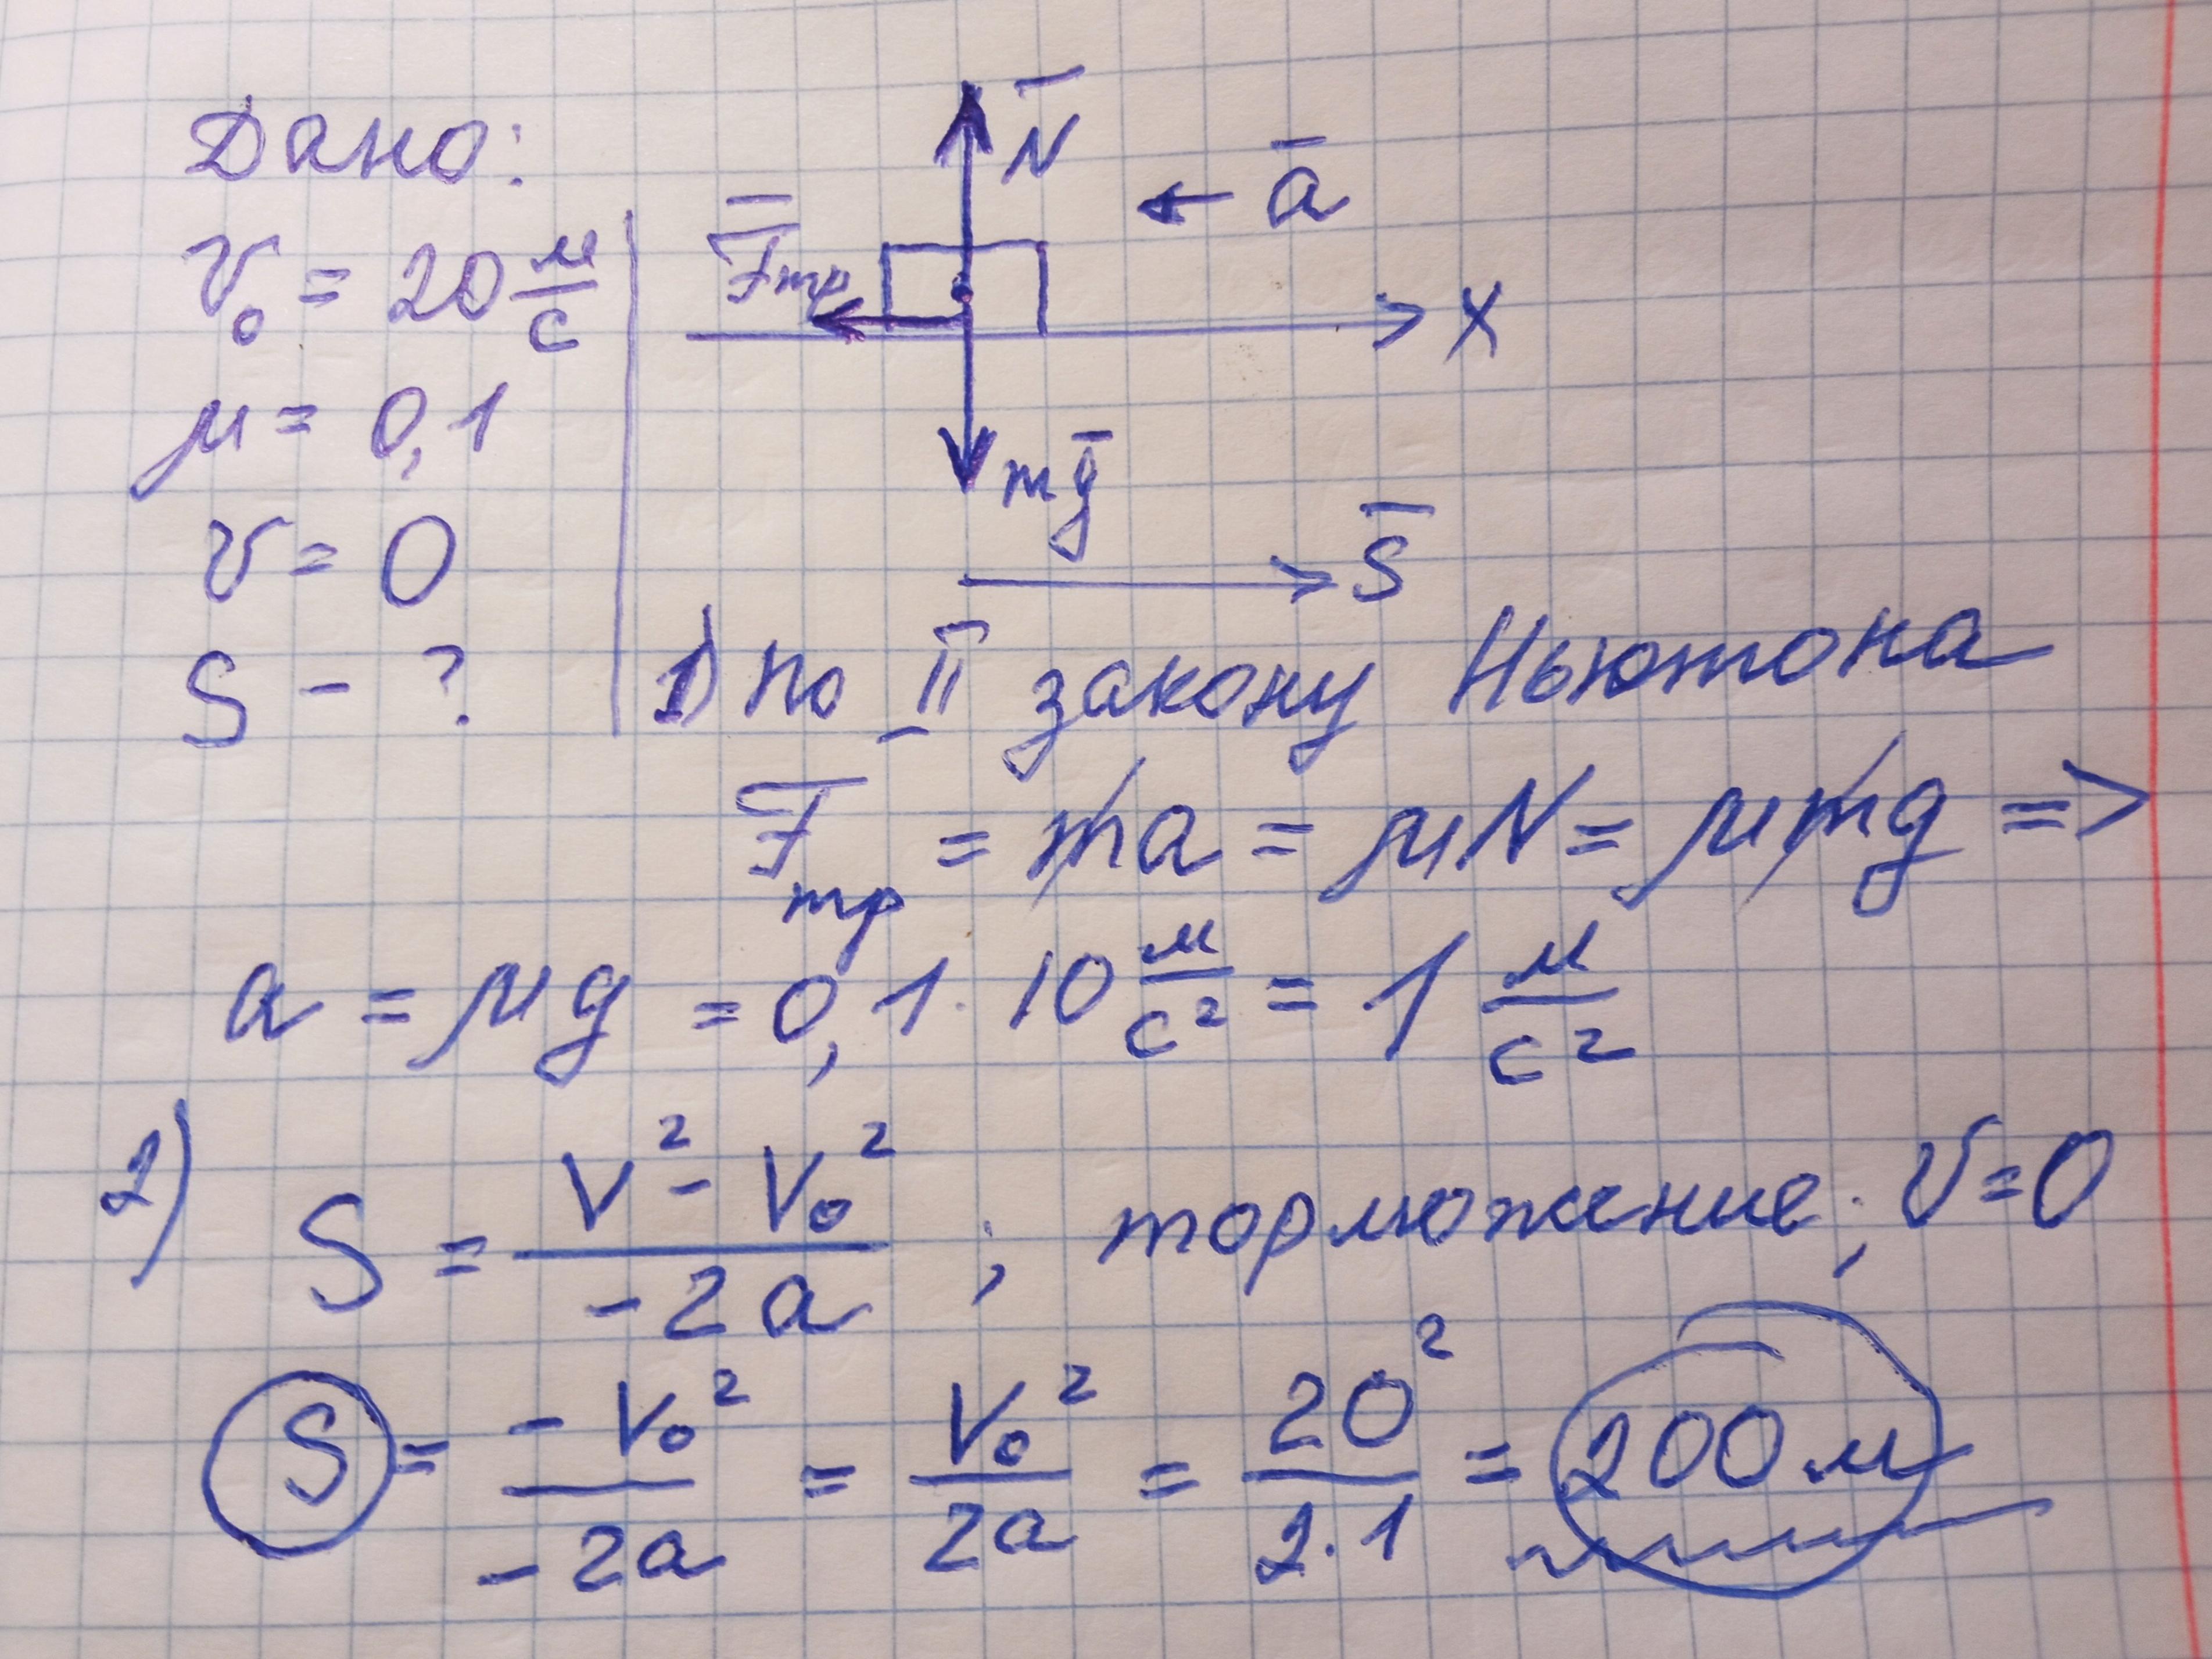 Дано:
v₀ = 20 м/с
μ = 0,1
v = 0
S - ?
N̅
a̅
F̅тр
X
mg̅
S̅
1) по II закону Ньютона
F̅тр = ma = μN = μmg =>
a = μg = 0,1 · 10 м/с² = 1 м/с²
2) S = (V² - V₀²)/(-2a) ; торможение; v=0
S = (-V₀²)/(-2a) = V₀²/(2a) = 20²/(2·1) = 200 м